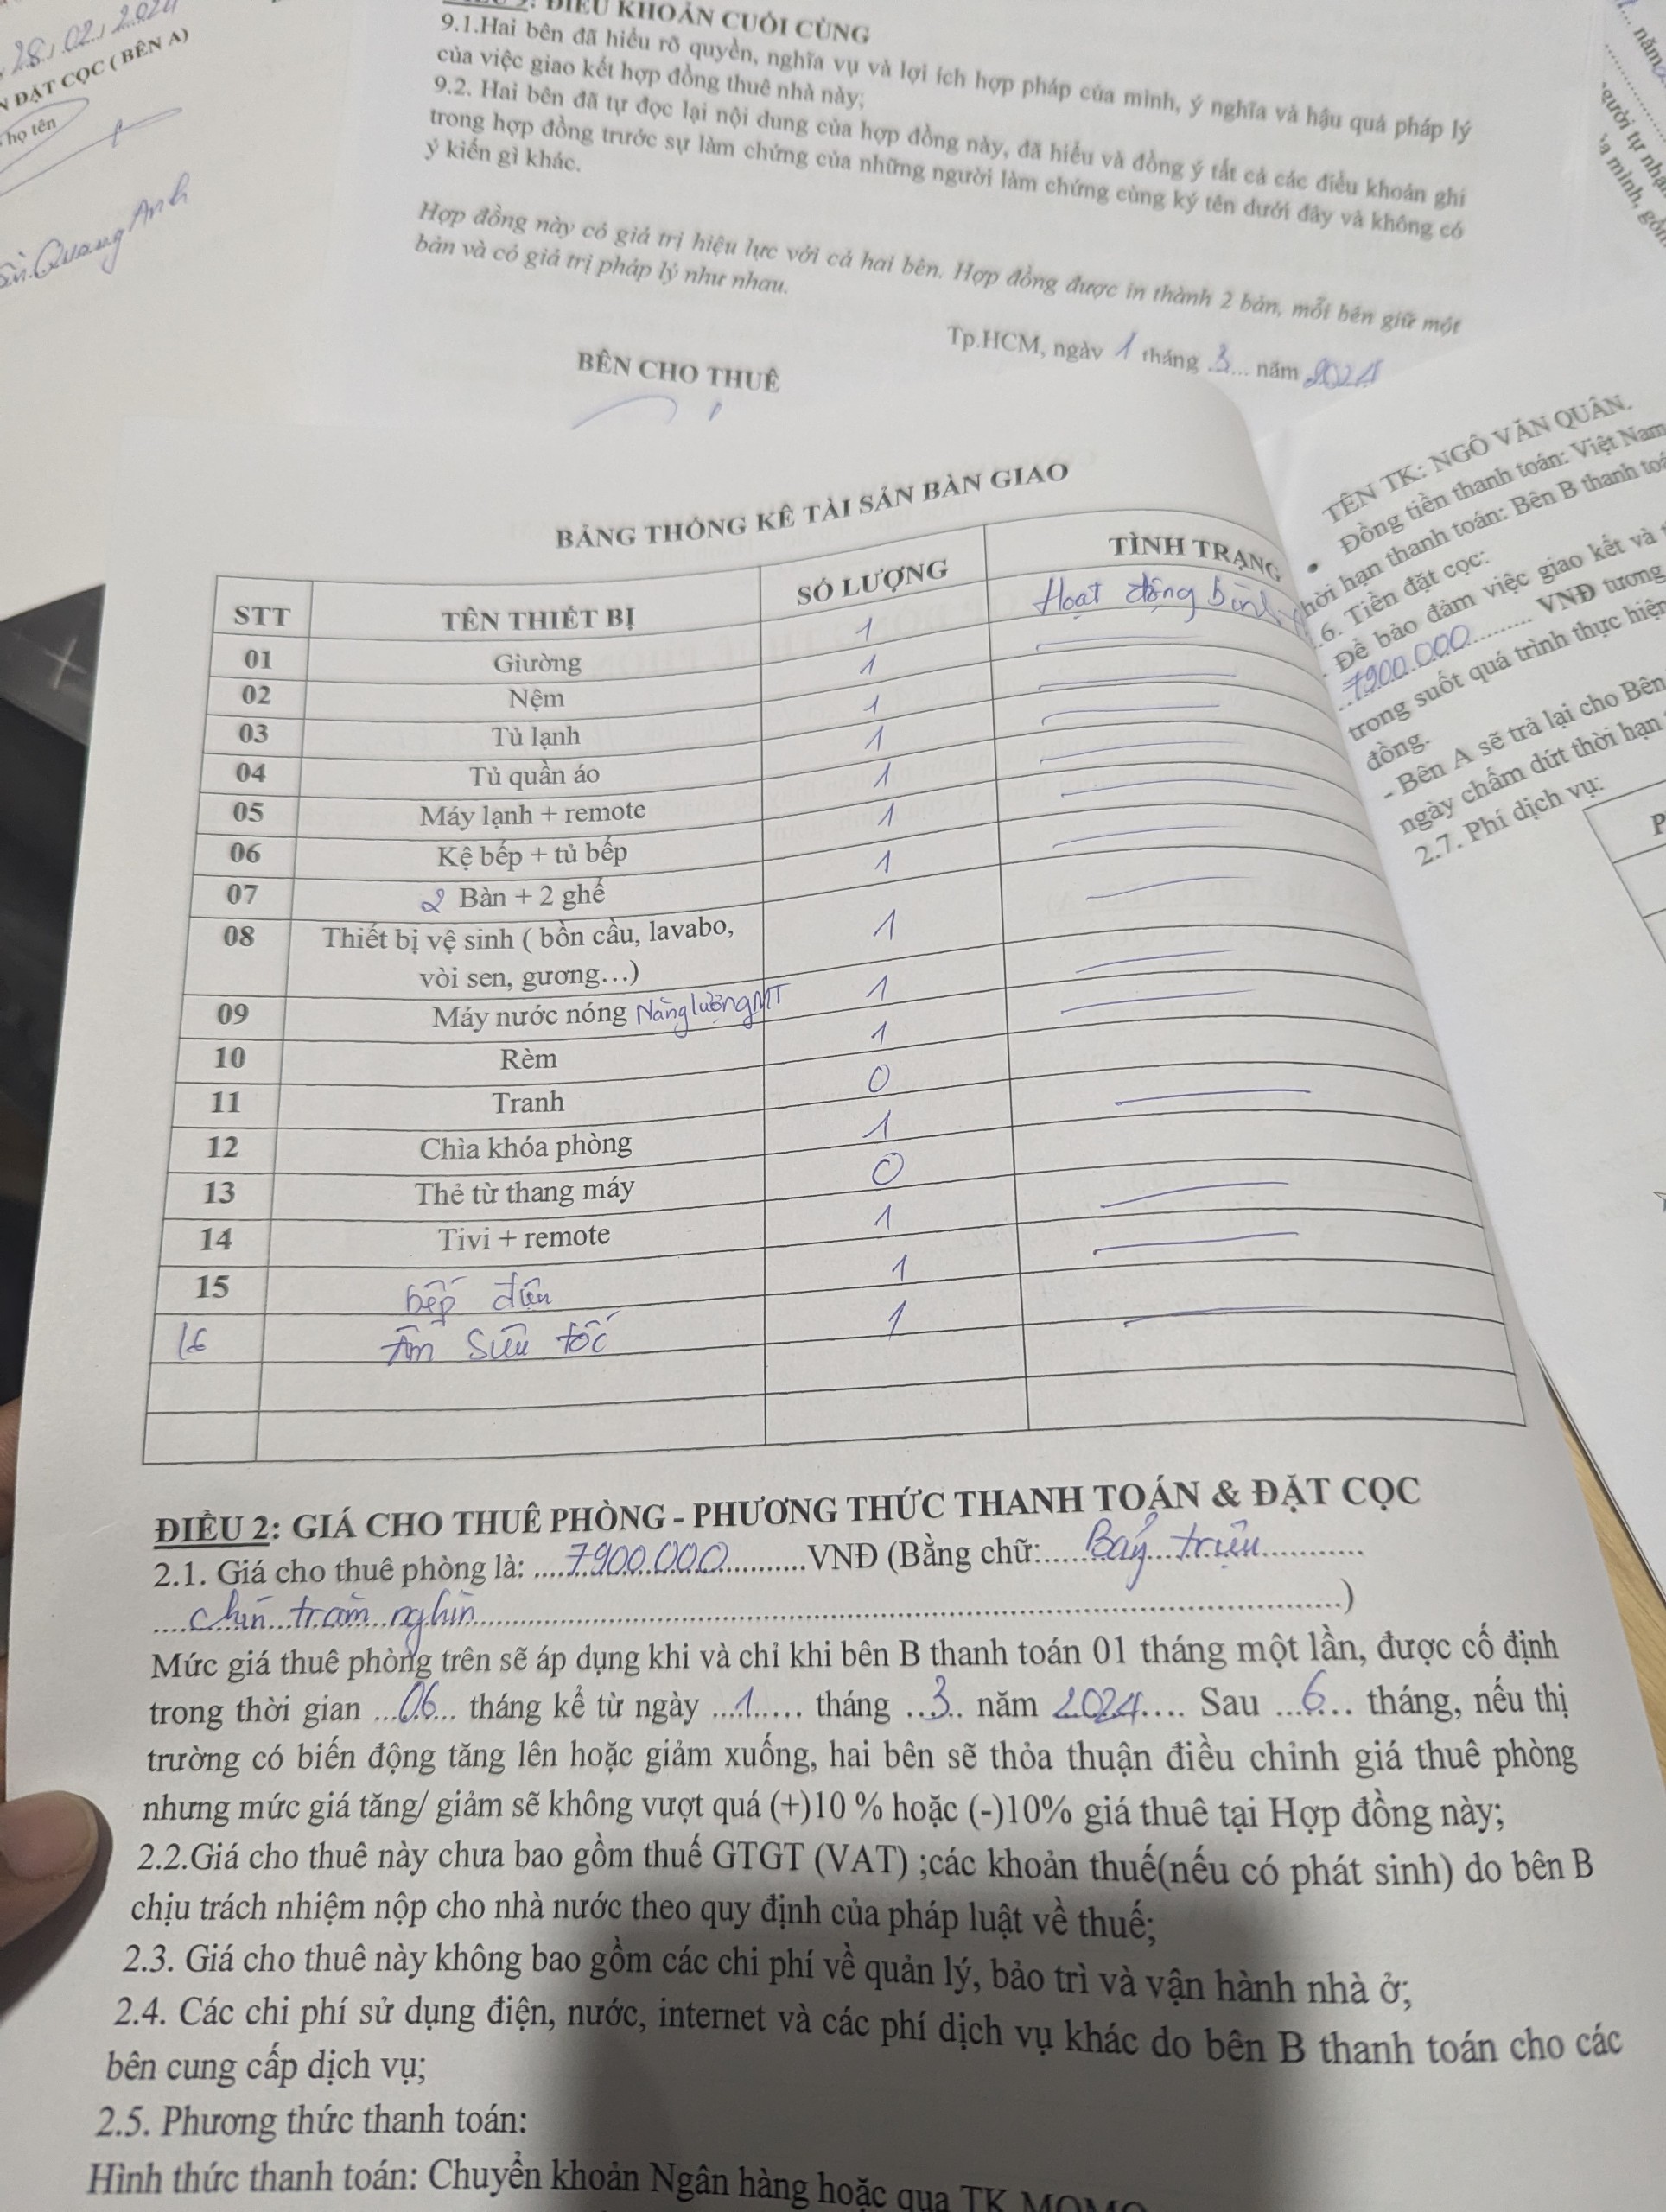 28/02/2024
ĐẶT CỌC ( BÊN A)
họ tên
Quang Anh
ĐIỀU KHOẢN CUỐI CÙNG
9.1.Hai bên đã hiểu rõ quyền, nghĩa vụ và lợi ích hợp pháp của mình, ý nghĩa và hậu quả pháp lý
của việc giao kết hợp đồng thuê nhà này;
9.2. Hai bên đã tự đọc lại nội dung của hợp đồng này, đã hiểu và đồng ý tất cả các điều khoản ghi
trong hợp đồng trước sự làm chứng của những người làm chứng cùng ký tên dưới đây và không có
ý kiến gì khác.
Hợp đồng này có giá trị hiệu lực với cả hai bên. Hợp đồng được in thành 2 bản, mỗi bên giữ một
bản và có giá trị pháp lý như nhau.
Tp.HCM, ngày 1 tháng 3... năm 2024
BÊN CHO THUÊ
BẢNG THỐNG KÊ TÀI SẢN BÀN GIAO
STT TÊN THIẾT BỊ SỐ LƯỢNG TÌNH TRẠNG
01 Giường 1 Hoạt động bình
02 Nệm 1
03 Tủ lạnh 1
04 Tủ quần áo 1
05 Máy lạnh + remote 1
06 Kệ bếp + tủ bếp 1
07 2 Bàn + 2 ghế 1
08 Thiết bị vệ sinh ( bồn cầu, lavabo, 1
vòi sen, gương…)
09 Máy nước nóng Năng lượng MT 1
10 Rèm 1
11 Tranh 0
12 Chìa khóa phòng 1
13 Thẻ từ thang máy 0
14 Tivi + remote 1
15 bếp điện 1
16 Ấm siêu tốc 1
ĐIỀU 2: GIÁ CHO THUÊ PHÒNG - PHƯƠNG THỨC THANH TOÁN & ĐẶT CỌC
2.1. Giá cho thuê phòng là: ....7900.000..........VNĐ (Bằng chữ:.....Bảy triệu.............
....chín trăm nghìn..........................................................)
Mức giá thuê phòng trên sẽ áp dụng khi và chỉ khi bên B thanh toán 01 tháng một lần, được cố định
trong thời gian ...06... tháng kể từ ngày ...1..... tháng ...3.. năm 2024.... Sau ...6... tháng, nếu thị
trường có biến động tăng lên hoặc giảm xuống, hai bên sẽ thỏa thuận điều chỉnh giá thuê phòng
nhưng mức giá tăng/ giảm sẽ không vượt quá (+)10 % hoặc (-)10% giá thuê tại Hợp đồng này;
2.2.Giá cho thuê này chưa bao gồm thuế GTGT (VAT) ;các khoản thuế(nếu có phát sinh) do bên B
chịu trách nhiệm nộp cho nhà nước theo quy định của pháp luật về thuế;
2.3. Giá cho thuê này không bao gồm các chi phí về quản lý, bảo trì và vận hành nhà ở;
2.4. Các chi phí sử dụng điện, nước, internet và các phí dịch vụ khác do bên B thanh toán cho các
bên cung cấp dịch vụ;
2.5. Phương thức thanh toán:
Hình thức thanh toán: Chuyển khoản Ngân hàng hoặc qua TK MOMO
TÊN TK: NGÔ VĂN QUÂN.
• Đồng tiền thanh toán: Việt Nam
hời hạn thanh toán: Bên B thanh toá
.6. Tiền đặt cọc:
- Để bảo đảm việc giao kết và
..7900.000.......... VNĐ tương
trong suốt quá trình thực hiện
đồng.
- Bên A sẽ trả lại cho Bên
ngày chấm dứt thời hạn
2.7. Phí dịch vụ:
P
năm
người tự nhậ
mình, gồ